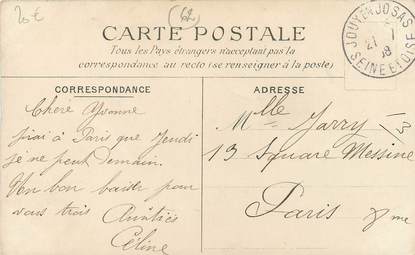 20€
62
CARTE POSTALE
Tous les Pays étrangers n'acceptant pas la
correspondance au recto (se renseigner à la poste)
JOUY EN JOSAS
21 -1
08
SEINE ET OISE
CORRESPONDANCE
ADRESSE
Chère Yvonne
j'irai à Paris que Jeudi
je ne peut Demain.
Un bon baiser pour
vous trois
Céline
Mlle Jarry
13 Square Messine
Paris